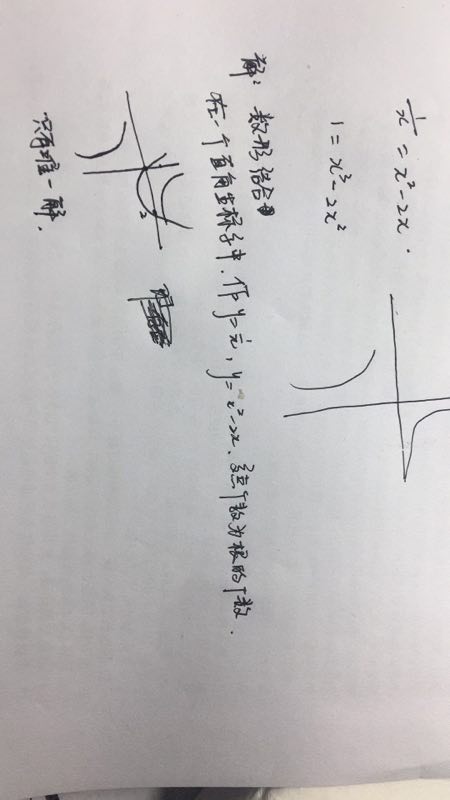 1/x = x²-2x.
1 = x³-2x²
解: 数形结合
在一个直角坐标系中. 作 y=1/x, y=x²-2x. 交点个数为根的个数.
2
只有唯一解.